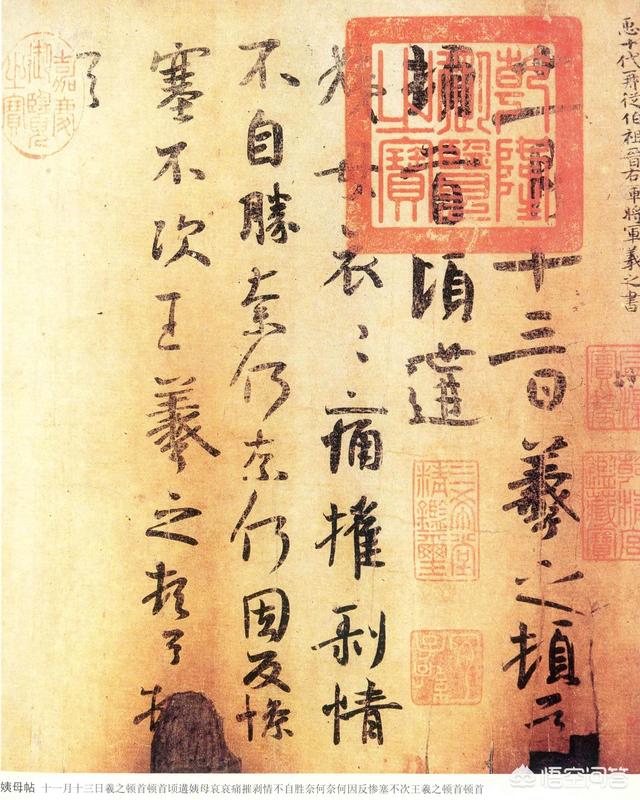 臣十代再從伯祖晉右軍將軍羲之書
十一月十三日羲之頓首
頓首頃遘
姨母哀〻痛摧剥情
不自勝奈何奈何因反慘
塞不次王羲之頓首頓
首
乾隆御覽之寶
嘉慶御覽之寶
三希堂精鑑璽
乾清宮鑑藏寶
姨母帖 十一月十三日羲之顿首顿首顷遘姨母哀哀痛摧剥情不自胜奈何奈何因反惨塞不次王羲之顿首顿首
悟空问答